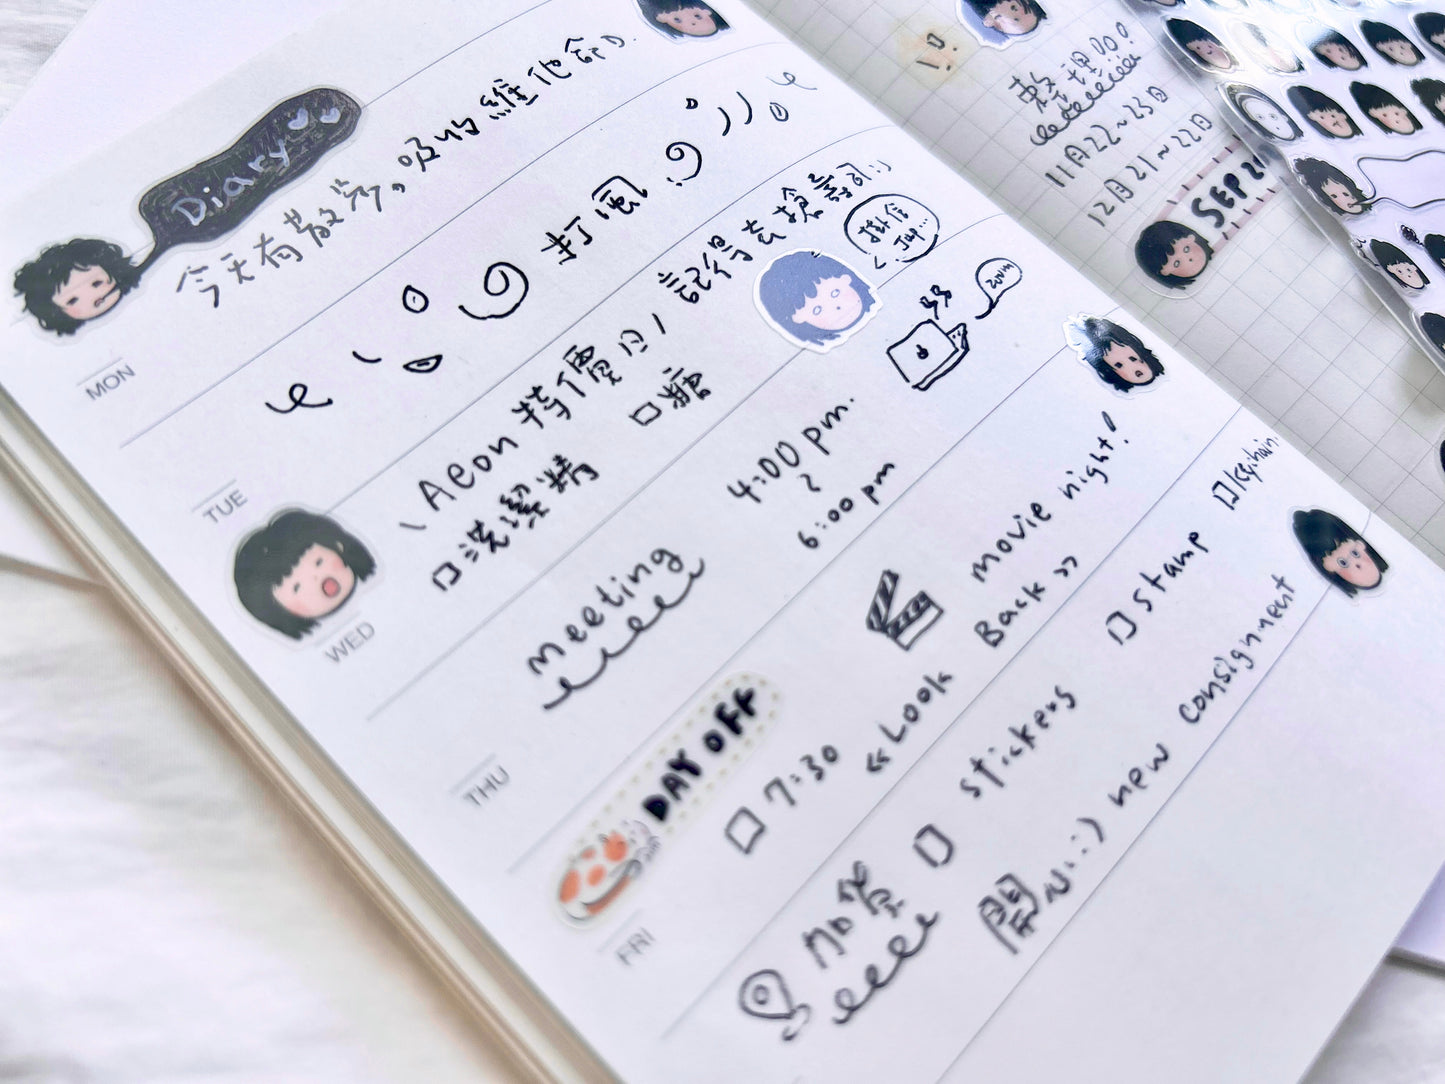 Diary
今天有散步。吸收維他命D.
MON
打風
TUE
\Aeon 特價日/ 記得去搶嘢呀:)
口洗潔精
口糖
掛信
WED
meeting
4:00 pm.
6:00 pm
zoom
THU
DAY OFF
口 7:30
movie night!
«Look Back»
FRI
加貨
口 stickers
口 stamp
開心:) new consignment
整理
11月22~23日
12月21~22日
SEP